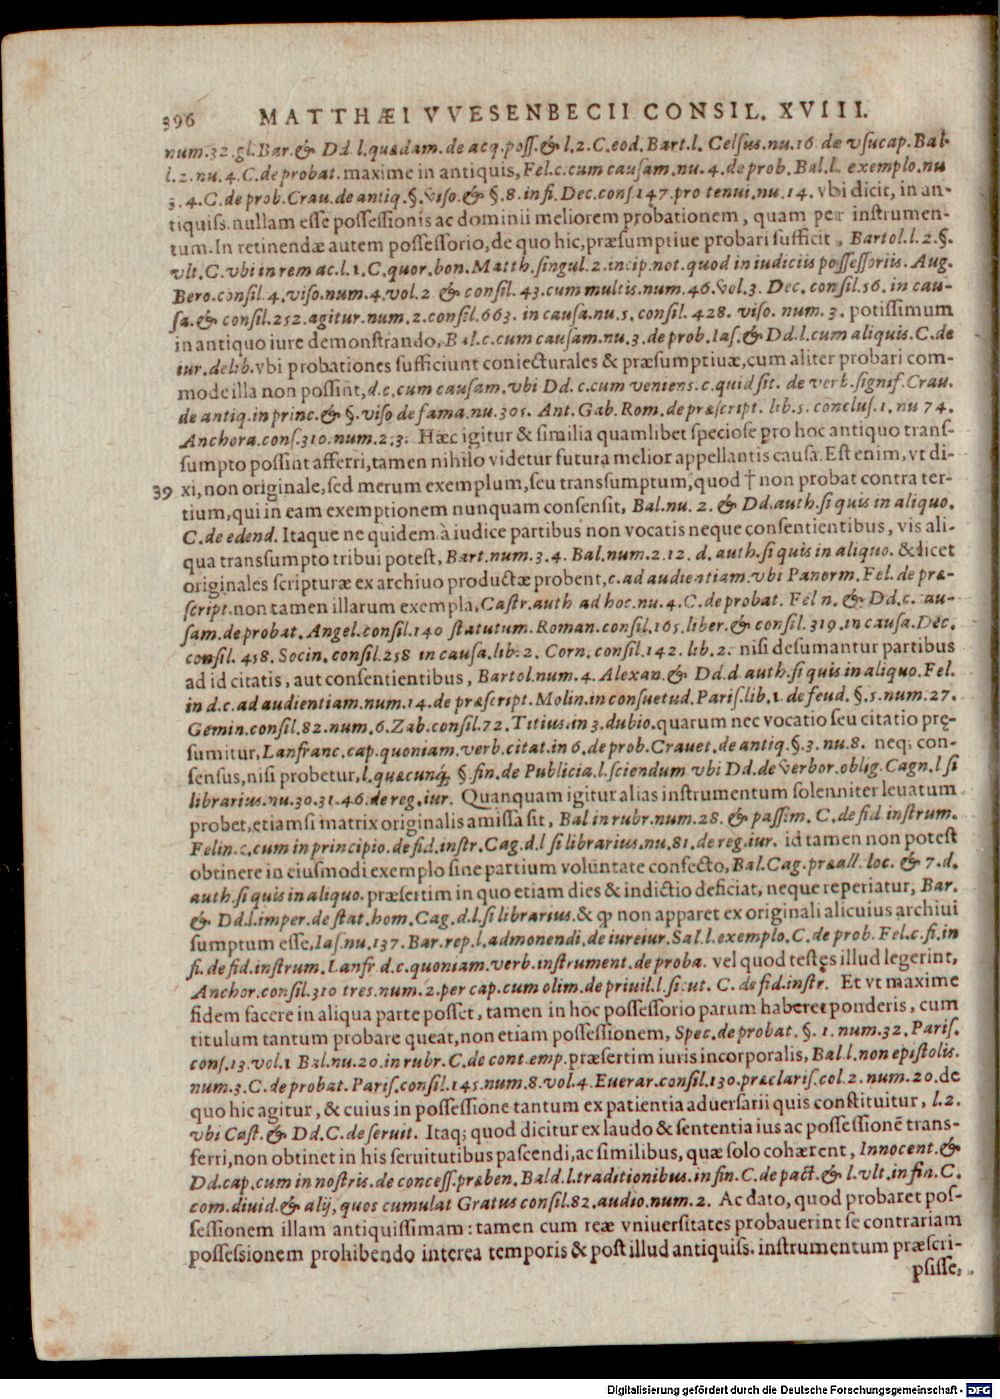 396 MATTHÆI VVESENBECII CONSIL. XVIII.
num.32.gl.Bar.& Dd l.quædam.de acq.poss.& l.2.C.eod.Bart.l. Celsus.nu.16 de vsucap.Bal.
l.2.nu.4.C.de probat.maxime in antiquis, Fel.c.cum causam.nu.4.de prob.Bal.l. exemplo.nu
3.4.C.de prob.Crau.de antiq.§.viso.& §.8.in fi.Dec.cons.147.pro tenui.nu.14. vbi dicit, in an-
tiquiss.nullam esse possessionis ac dominii meliorem probationem, quam per instrumen-
tum.In retinendæ autem possessorio,de quo hic,præsumptiue probari sufficit, Bartol.l.2.§.
vlt.C.vbi in rem ac.l.1.C.quor.bon.Matth.singul.2.incip.not.quod in iudiciis possessoriis. Aug.
Bero.consil.4.viso.num.4.vol.2 & consil.43.cum multis.num.46.vol.3. Dec.consil.56.in cau-
sa.& consil.252.agitur.num.2.consil.663. in causa.nu.5.consil.428. viso.num.3. potissimum
in antiquo iure demonstrando, Bal.c.cum causam.nu.3.de prob.Ias.& Dd.l.cum aliquis.C.de
iur.delib.vbi probationes sufficiunt coniecturales & præsumptiuæ,cum aliter probari com-
mode illa non possint,d.c.cum causam.vbi Dd.c.cum veniens.c.quid sit. de verb.signif.Crau.
de antiq.in princ.& §.viso de fama.nu.305. Ant.Gab.Rom.de præscript. lib.5.conclus.1.nu 74.
Anchora.cons.310.num.2.3. Hæc igitur & similia quamlibet speciose pro hoc antiquo trans-
sumpto possint afferri,tamen nihilo videtur futura melior appellantis causa.Est enim,vt di-
39 xi,non originale,sed merum exemplum,seu transsumptum,quod † non probat contra ter-
tium,qui in eam exemptionem nunquam consensit, Bal.nu.2.& Dd.auth.si quis in aliquo.
C.de edend. Itaque ne quidem à iudice partibus non vocatis neque consentientibus, vis ali-
qua transsumpto tribui potest, Bart.num.3.4. Bal.num.2.12. d.auth.si quis in aliquo. & licet
originales scripturæ ex archiuo productæ probent,c.ad audientiam.vbi Panorm.Fel.de præ-
script.non tamen illarum exempla,Castr.auth ad hoc.nu.4.C.de probat. Fel n.& Dd.c. au-
sam.de probat.Angel.consil.140 statutum.Roman.consil.165.liber.& consil.319.in causa.Dec.
consil.458.Socin.consil.258 in causa.lib.2. Corn.consil.142.lib.2. nisi desumantur partibus
ad id citatis, aut consentientibus, Bartol.num.4. Alexan.& Dd.d auth.si quis in aliquo.Fel.
in d.c.ad audientiam.num.14.de præscript.Molin.in consuetud.Paris.lib.1.de feud.§.5.num.27.
Gemin.consil.82.num.6.Zab.consil.72.Titius.in 3.dubio.quarum nec vocatio seu citatio pręsumitur,
Lanfranc.cap.quoniam.verb.citat.in 6.de prob.Crauet.de antiq.§.3.nu.8. neq; con-
sensus,nisi probetur,l.quæcunq; §.fin.de Publicia.l.sciendum vbi Dd.de verbor.oblig.Cagn.l si
librarius.nu.30.31.46.de reg.iur. Quanquam igitur alias instrumentum solenniter leuatum
probet,etiamsi matrix originalis amissa sit, Bal in rubr.num.28.& passim.C.de fid instrum.
Felin.c.cum in principio.de fid.instr.Cag.d.l si librarius.nu.81.de reg.iur. id tamen non potest
obtinere in eiusmodi exemplo sine partium voluntate confecto, Bal.Cag.præall.loc.& 7.d.
auth.si quis in aliquo.præsertim in quo etiam dies & indictio deficiat, neque reperiatur, Bar.
& Dd.l.imper.de stat.hom.Cag.d.l.si librarius.& ꝙ non apparet ex originali alicuius archiui
sumptum esse,Ias.nu.137.Bar.rep.l.admonendi.de iureiur.Sal.l.exemplo.C.de prob.Fel.c.fi.in
fi.de fid.instrum.Lanfr d.c.quoniam.verb.instrument.de proba. vel quod testes illud legerint,
Anchor.consil.310 tres.num.2.per cap.cum olim.de priuil.l.sicut. C.de fid.instr. Et vt maxime
fidem facere in aliqua parte posset, tamen in hoc possessorio parum haberet ponderis, cum
titulum tantum probare queat,non etiam possessionem, Spec.de probat. §.1.num.32.Paris.
cons.13.vol.1 Bal.nu.20.in rubr.C.de cont emp.præsertim iuris incorporalis, Bal l.non epistolis.
num.3.C.de probat. Paris.consil.145.num.8.vol.4.Euerar.consil.130.præclaris.col 2.num.20.de
quo hic agitur, & cuius in possessione tantum ex patientia aduersarii quis constituitur, l.2.
vbi Cast.& Dd.C.de seruit. Itaq; quod dicitur ex laudo & sententia ius ac possessionē trans-
ferri,non obtinet in his seruitutibus pascendi,ac similibus, quæ solo cohærent, Innocent.&
Dd.cap.cum in nostris.de concess.præben. Bald.l.traditionibus.in fin.C.de pact.& l.vlt.in fin.C.
com.diuid.& alij, quos cumulat Gratus consil.82.audio.num.2. Ac dato, quod probaret pos-
sessionem illam antiquissimam: tamen cum reæ vniuersitates probauerint se contrariam
possessionem prohibendo interea temporis & post illud antiquiss. instrumentum præscri-
psisse,
Digitalisierung gefördert durch die Deutsche Forschungsgemeinschaft - DFG